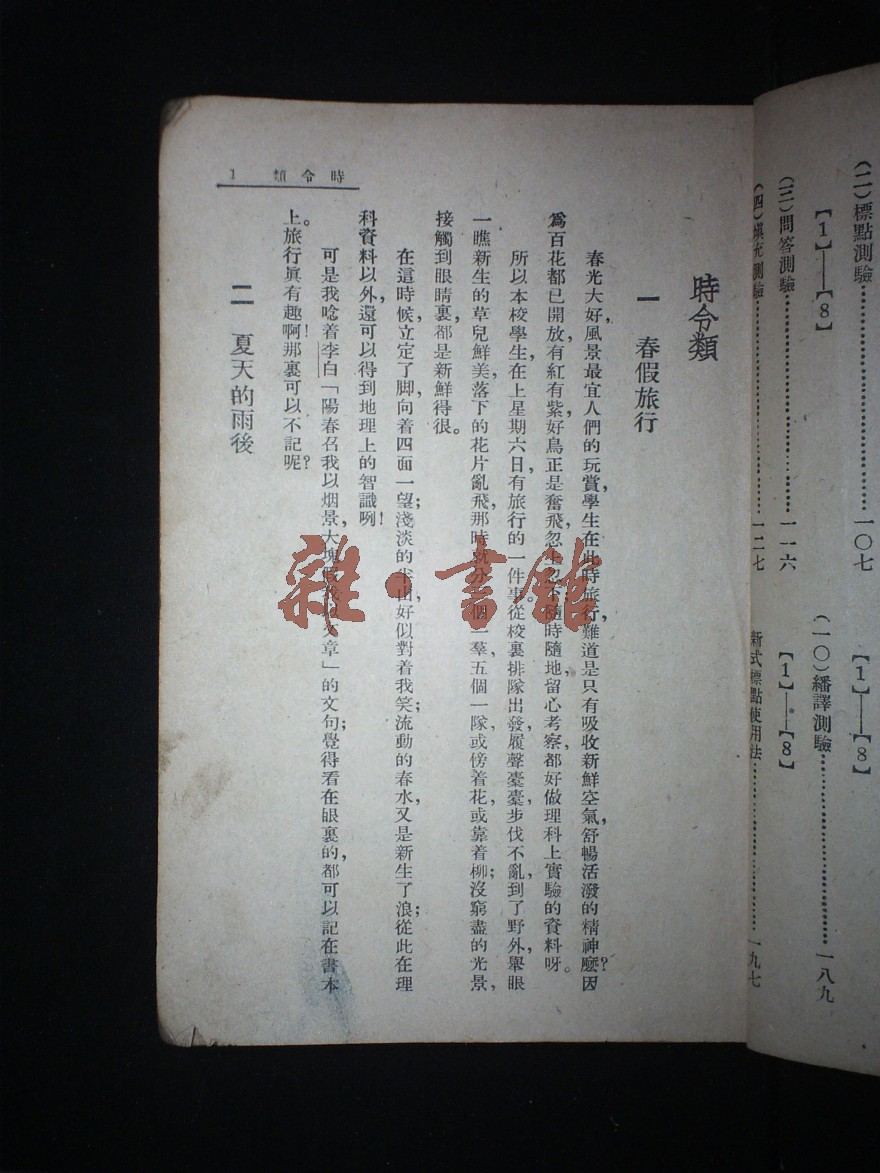 (二)標點測驗……一〇七
【1】——【8】
【1】——【8】
(三)問答測驗……一一六
(一〇)繙譯測驗……一八九
【1】——【8】
(四)填充測驗……一二七
新式標點使用法……一九七
時令類 1
時令類
一 春假旅行
春光大好,風景最宜人們的玩賞,學生在此時旅行,難道是只有吸收新鮮空氣,舒暢活潑的精神麼?因
爲百花都已開放,有紅有紫,好鳥正是奮飛,忽上忽下,隨時隨地,留心考察,都好做理科上實驗的資料呀。
所以本校學生,在上星期六日,有旅行的一件事。從校裏排隊出發,履聲橐橐,步伐不亂,到了野外,舉眼
一瞧,新生的草兒鮮美,落下的花片亂飛,那時就分個一羣,五個一隊,或傍着花,或靠着柳;沒窮盡的光景,
接觸到眼睛裏,都是新鮮得很。
在這時候,立定了脚,向着四面一望;淺淡的山,好似對着我笑,流動的春水,又是新生了浪;從此在理
科資料以外,還可以得到地理上的智識咧!
可是我唸着李白「陽春召我以烟景,大塊假我以文章」的文句;覺得看在眼裏的,都可以記在書本
上。旅行眞有趣啊!那裏可以不記呢?
二 夏天的雨後
雜·書館